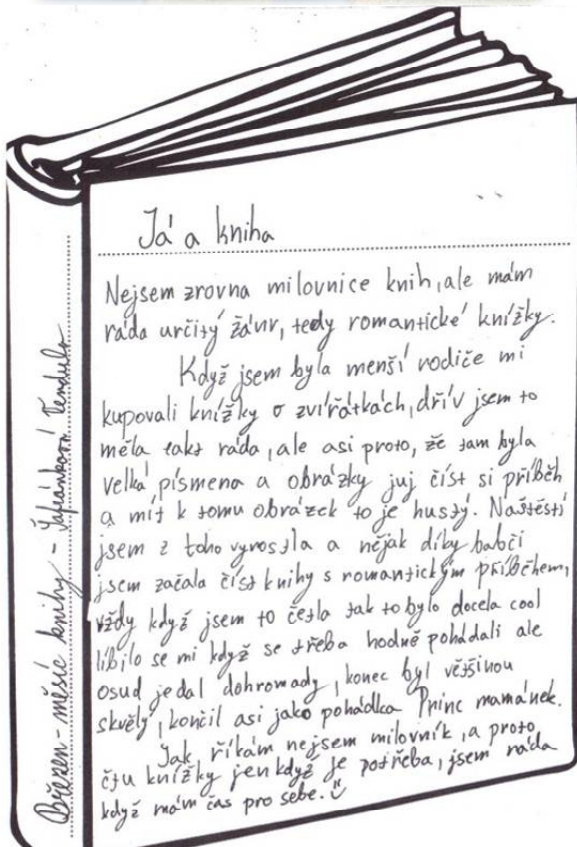 Já a kniha
Nejsem zrovna milovnice knih, ale mám
ráda určitý žánr, tedy romantické knížky.
Když jsem byla menší rodiče mi
kupovali knížky o zvířátkách, dřív jsem to
měla taky ráda, ale asi proto, že tam byla
velká písmena a obrázky juj číst si příběh
a mít k tomu obrázek to je hustý. Naštěstí
jsem z toho vyrostla a nějak díky babči
jsem začala číst knihy s romantickým příběhem,
vždy když jsem to četla tak to bylo docela cool
líbilo se mi když se třeba hodně pohádali ale
osud je dal dohromady, konec byl většinou
skvělý, končil asi jako pohádka Princ mamánek.
Jak říkám nejsem milovník, a proto
čtu knížky jen když je potřeba, jsem ráda
když mám čas pro sebe.
Březen - měsíc knihy - Vendula